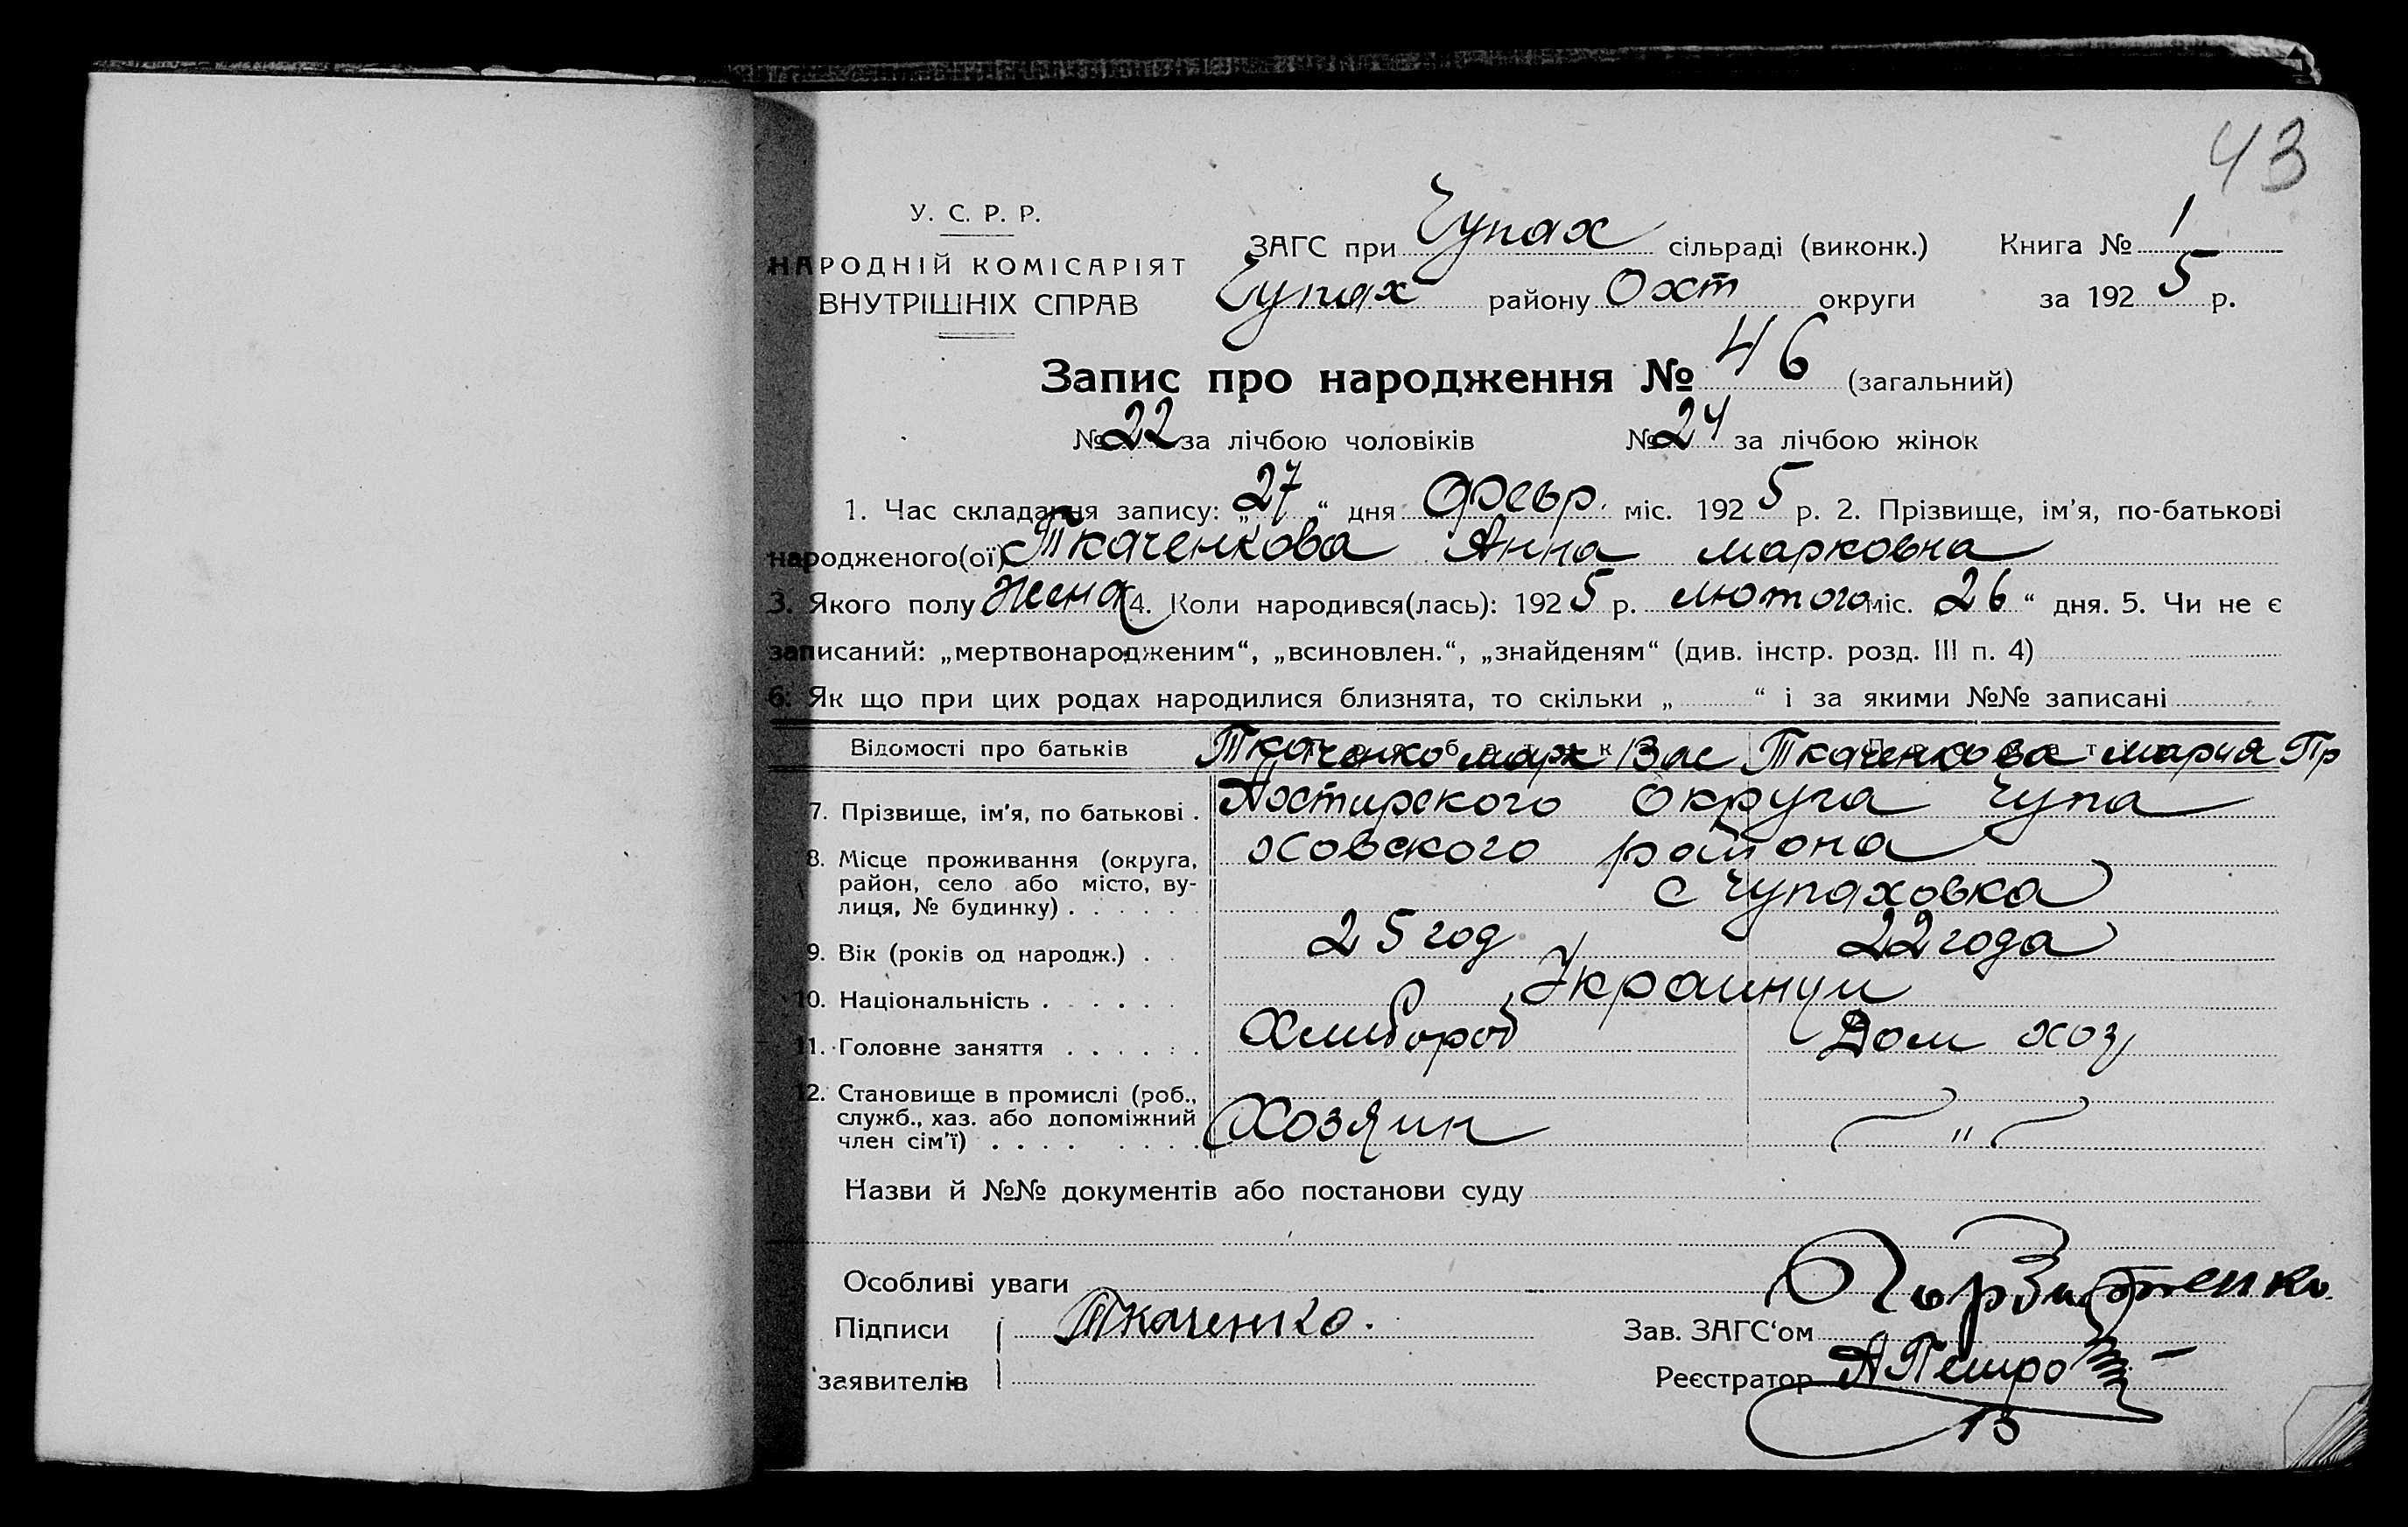 43
У. С. Р. Р.
НАРОДНІЙ КОМІСАРІЯТ
ВНУТРІШНІХ СПРАВ
ЗАГС при Чупах сільраді (виконк.) Книга № 1
Чупах району Охт округи за 1925 р.
Запис про народження № 46 (загальний)
№ 22 за лічбою чоловіків № 24 за лічбою жінок
1. Час складання запису: „27“ дня Февр. міс. 1925 р. 2. Прізвище, ім'я, по-батькові
народженого(ої) Ткаченкова Анна Марковна
3. Якого полу Жена 4. Коли народився(лась): 1925 р. лютого міс. 26 “ дня. 5. Чи не є
записаний: „мертвонародженим“, „всиновлен.“, „знайденям“ (див. інстр. розд. III п. 4)
6. Як що при цих родах народилися близнята, то скільки „ “ і за якими №№ записані
Відомості про батьків Ткаченко Марк Вас Ткаченкова Мария Пр
7. Прізвище, ім'я, по батькові . Ахтирского Округа Чупа
8. Місце проживання (округа, ховского района
район, село або місто, ву-
лиця, № будинку) . . . . . . с Чупаховка
9. Вік (років од народж.) . . 25 год 22 года
10. Національність . . . . . . Украинци
11. Головне заняття . . . . . . Хлибороб Дом хоз
12. Становище в промислі (роб.,
служб., хаз. або допоміжний
член сім'ї) . . . . . . . . Хозяин — " —
Назви й №№ документів або постанови суду
Особливі уваги
Підписи Ткаченко.
Зав. ЗАГС‘ом
заявителів
Реєстратор АПетро